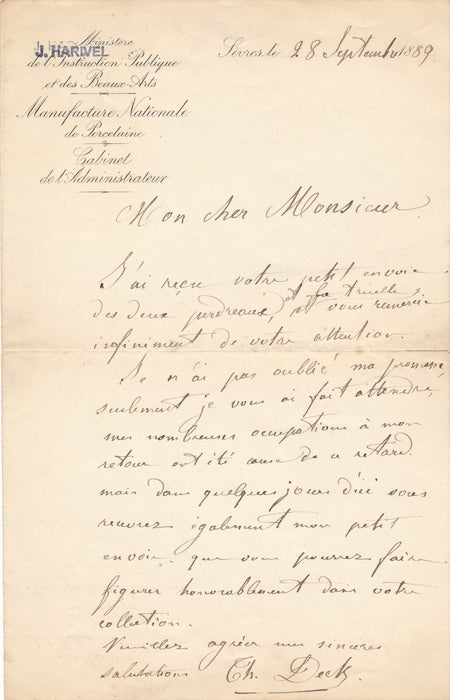 Ministère
J. HARIVEL
de l'Instruction Publique
et des Beaux-Arts
Manufacture Nationale
de Porcelaine
Cabinet
de l'Administrateur
Sèvres, le 28 Septembre 1889
Mon cher Monsieur
J'ai reçu votre petit envoie
des deux perdreaux, et la truelle et vous remercie
infiniment de votre attention.
Je n'ai pas oublié ma promesse
seulement je vous ai fait attendre,
mes nombreuses occupations à mon
retour ont été cause de ce retard.
mais dans quelques jours d'ici vous
recevrez également mon petit
envoie que vous pourrez faire
figurer honorablement dans votre
collection.
Veuillez agréer mes sincères
salutations Th. Deck